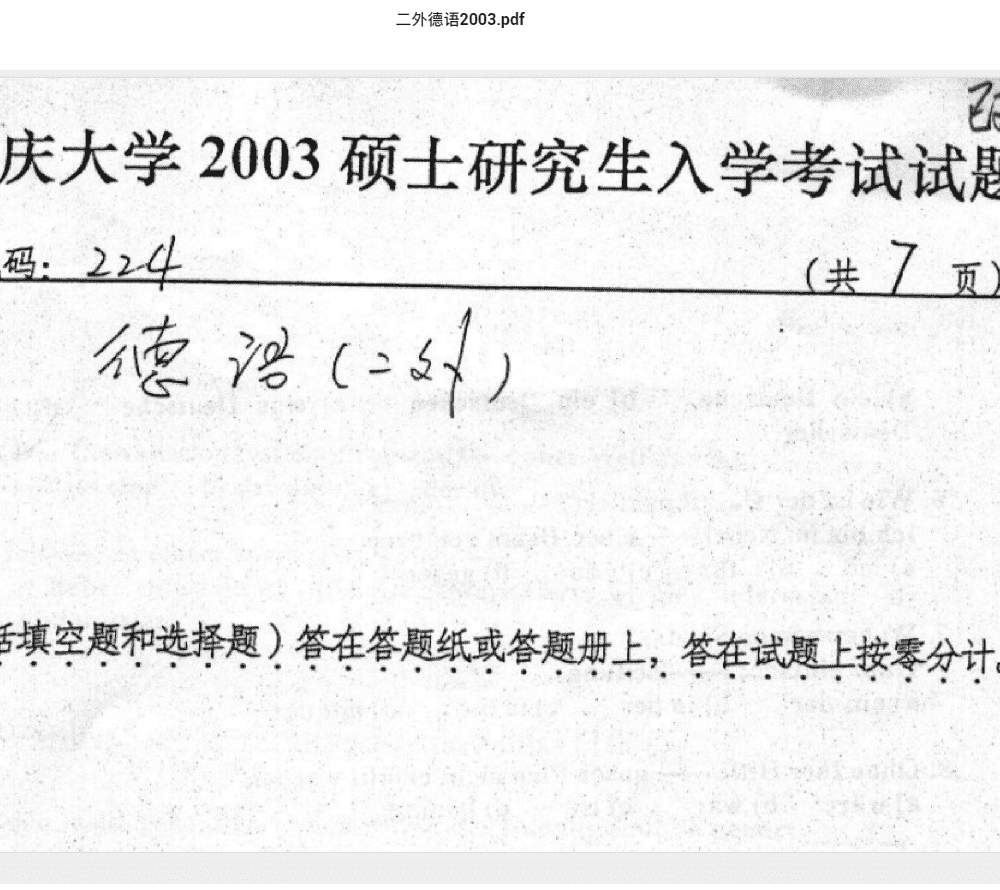 二外德语2003.pdf
庆大学 2003 硕士研究生入学考试试题
码: 224
(共 7 页)
德语(二外)
括填空题和选择题)答在答题纸或答题册上,答在试题上按零分计。